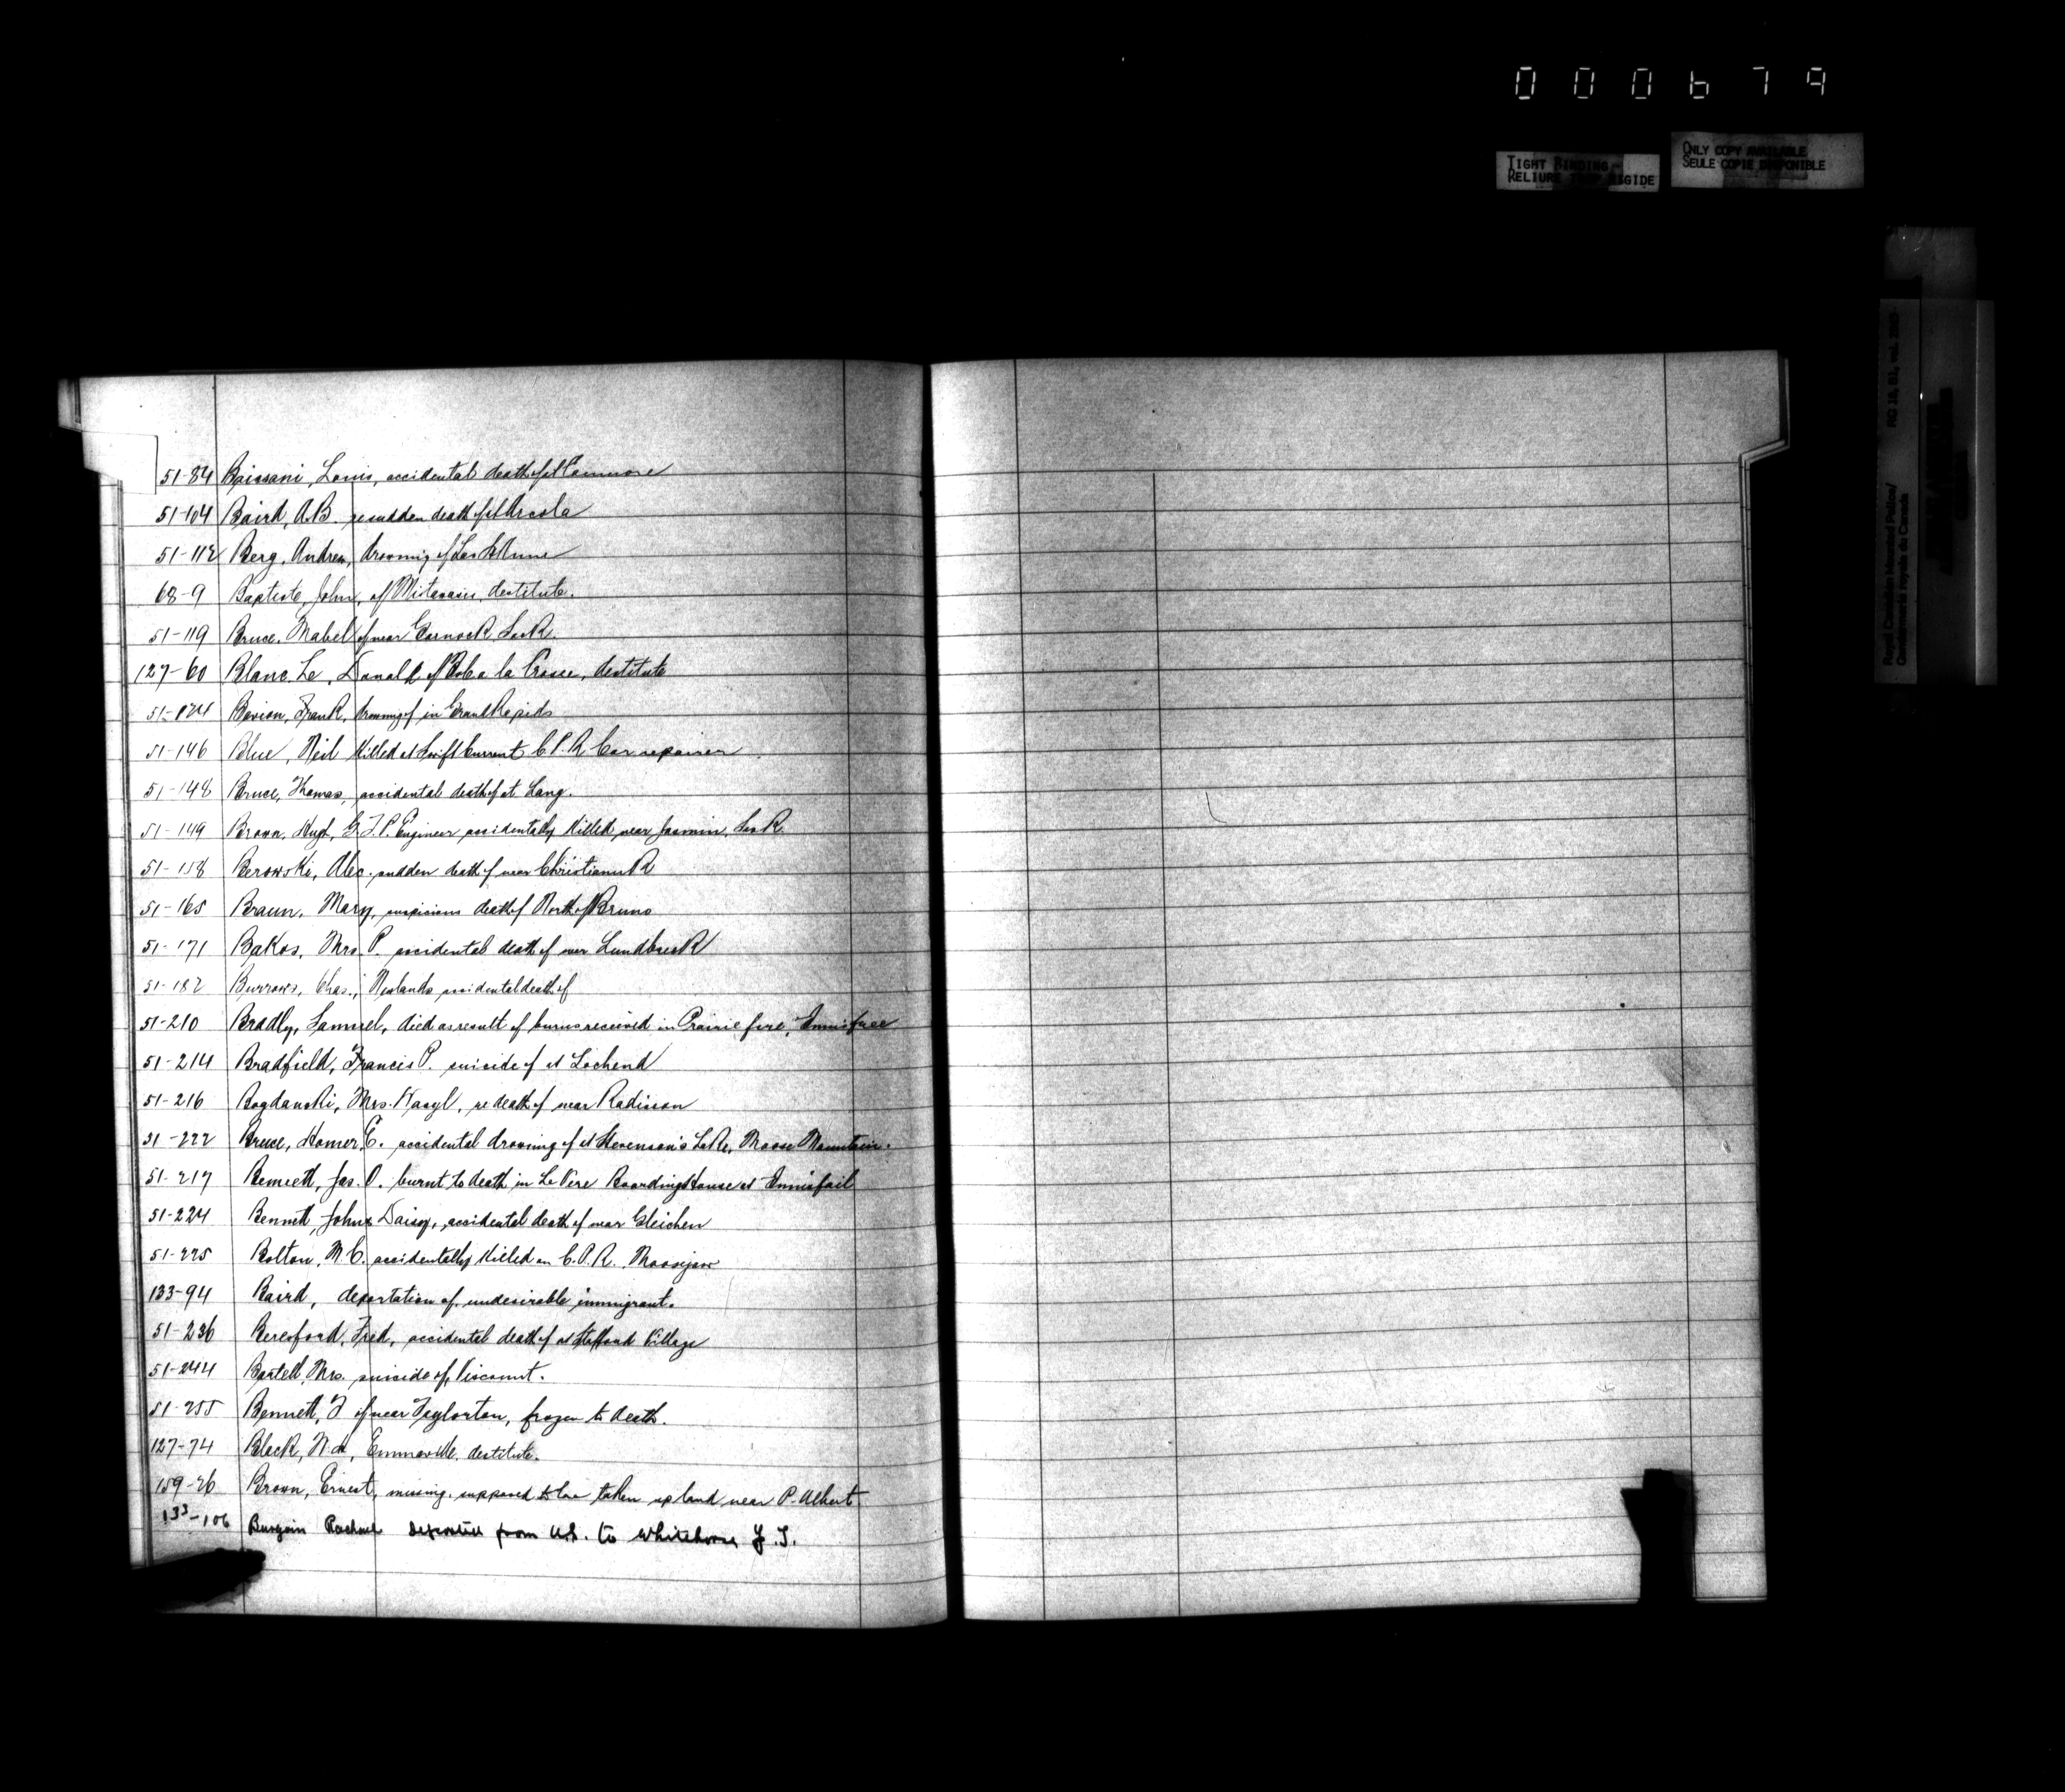 000679
TIGHT BINDING
RELIURE TROP RIGIDE
ONLY COPY AVAILABLE
SEULE COPIE DISPONIBLE
Royal Canadian Mounted Police/
Gendarmerie royale du Canada
RG 18, B1, vol.
51-84 Baissani, Louis, accidental death of at Canmore
51-104 Baird, A.B. re sudden death of at Arcola
51-112 Berg, Andrew, drowning of Lac St Anne
68-9 Baptiste, John, of destitute.
51-119 Bruce, Mabel of near SasK.
127-60 Blanc. Le, Donald of la Crosse, destitute
51-134 Frank, drowning of in Grand Rapids
51-146 Blue, Neil Killed at Swift Current C.P.R Car repairer
51-148 Bruce, Thomas, accidental death of at Lang.
51-149 Brown, Hugh, G.T.P. Engineer accidentally Killed near Jasmin, SasK.
51-158 Berowski, Alec. sudden death of near
51-165 Braun, Mary, suspicious death of North of Bruno
51-171 Bakos, Mrs. P. accidental death of near Lundbreck
51-182 Burrows, Chas., Newlands accidental death of
51-210 Bradly, Samuel, died as result of burns received in Prairie fire, Innisfree
51-214 Bradfield, Francis P. suicide of at Lochend
51-216 Bogdanski, Mrs. Wasyl, re death of near Radisson
51-222 Bruce, Homer, E. accidental drowning of at Stevenson's Lake, Moose Mountain.
51-217 Bennett, Jas. O. burnt to death in Le Vere Boarding House at Innisfail
51-224 Bennett, John & Daisy, accidental death of near Gleichen
51-225 Bolton, M.C. accidentally Killed on C.P.R. Moosejaw
133-94 Baird, deportation of undesirable immigrant.
51-236 Beresford, Fred, accidental death of at Village
51-244 Bartell, Mrs. suicide of, Viscount.
51-255 Bennett, J of near Taylorton, frozen to death.
127-74 Black, destitute.
159-26 Brown, Ernest, missing, supposed to have taken up land near P. Albert
133-106 Burgoin Rachael Deported from U.S. to Whitehorse Y.T.